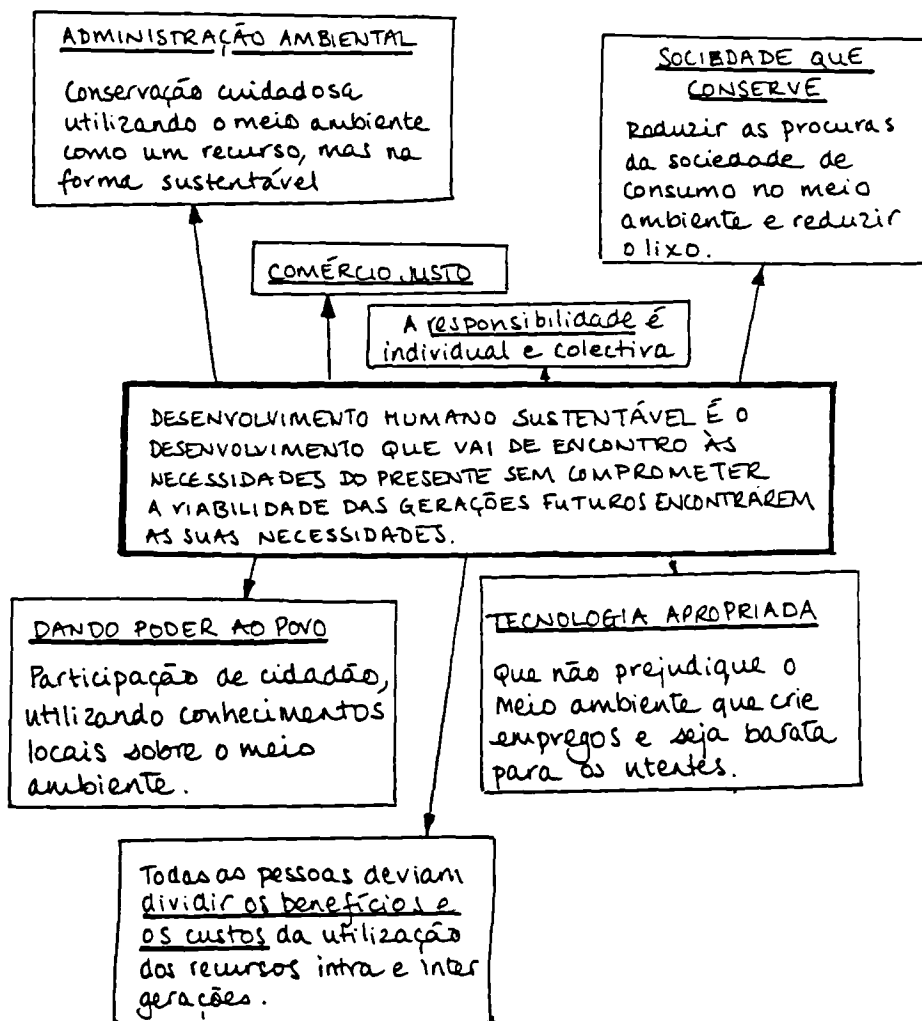 ADMINISTRAÇÃO AMBIENTAL
Conservação cuidadosa
utilizando o meio ambiente
como um recurso, mas na
forma sustentável
SOCIEDADE QUE
CONSERVE
Reduzir as procuras
da sociedade de
consumo no meio
ambiente e reduzir
o lixo.
COMÉRCIO JUSTO
A responsibilidade é
individual e colectiva
DESENVOLVIMENTO HUMANO SUSTENTÁVEL É O
DESENVOLVIMENTO QUE VAI DE ENCONTRO ÀS
NECESSIDADES DO PRESENTE SEM COMPROMETER
A VIABILIDADE DAS GERAÇÕES FUTUROS ENCONTRAREM
AS SUAS NECESSIDADES.
DANDO PODER AO POVO
Participação de cidadão,
utilizando conhecimentos
locais sobre o meio
ambiente.
TECNOLOGIA APROPRIADA
Que não prejudique o
meio ambiente que crie
empregos e seja barata
para os utentes.
Todas as pessoas deviam
dividir os benefícios e
os custos da utilização
dos recursos intra e inter
gerações.